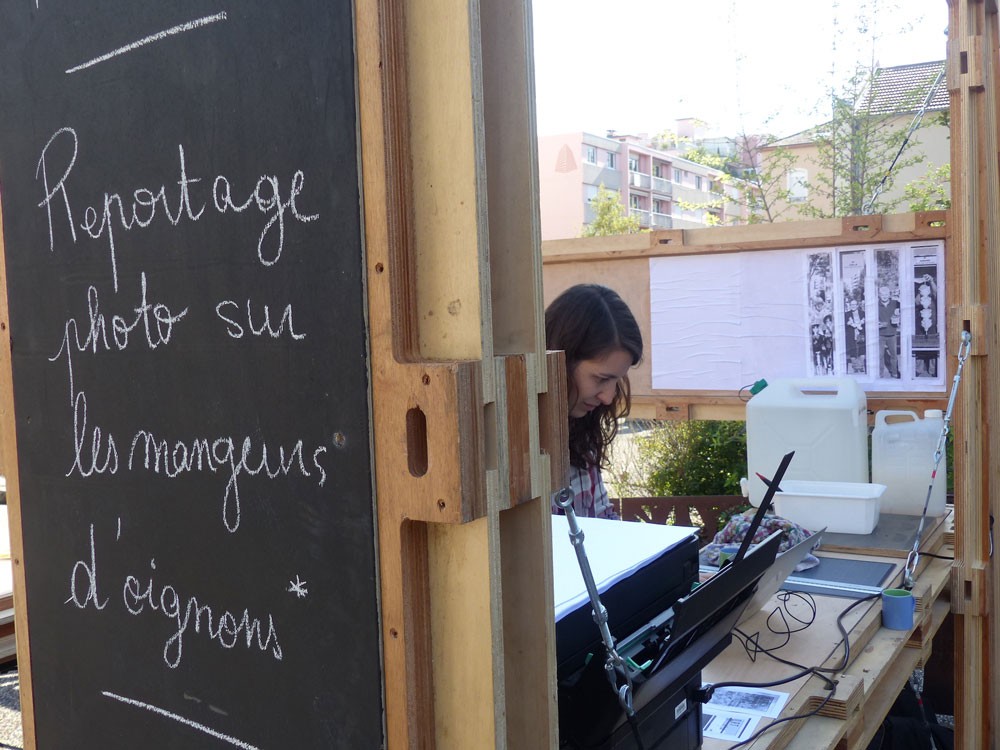 Reportage
photo sur
les mangeurs
d'oignons*